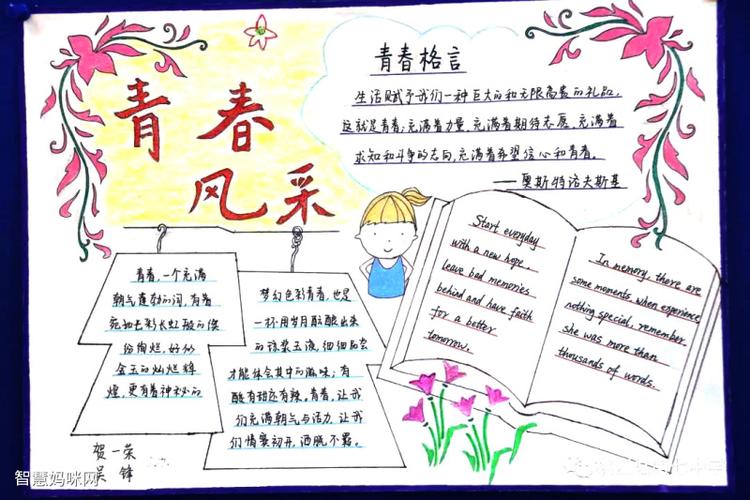 青春
风采
青春格言
生活赋予我们一种巨大的和无限高贵的礼品,
这就是青春:充满着力量,充满着期待志愿,充满着
求知和斗争的志向,充满着希望信心和青春。
——奥斯特洛夫斯基
青春,一个充满
朝气蓬勃的词,有着
宛如七彩长虹般的缤
纷绚烂,好似
金玉的灿烂辉
煌,更有着神秘的
梦幻色彩青春,也是
一杯用岁月酝酿出来
的琼浆玉液,细细品尝
才能体会其中的滋味:有
酸有甜还有辣。青春,让我
们充满朝气与活力,让我
们情窦初开,洒脱不羁。
Start everyday
with a new hope,
leave bad memories
behind and have faith
for a better
tomorrow.
In memory, there are
some moments, when experience
nothing special, remember
she was more than
thousands of words.
贺一荣
吴锋
智慧妈咪网